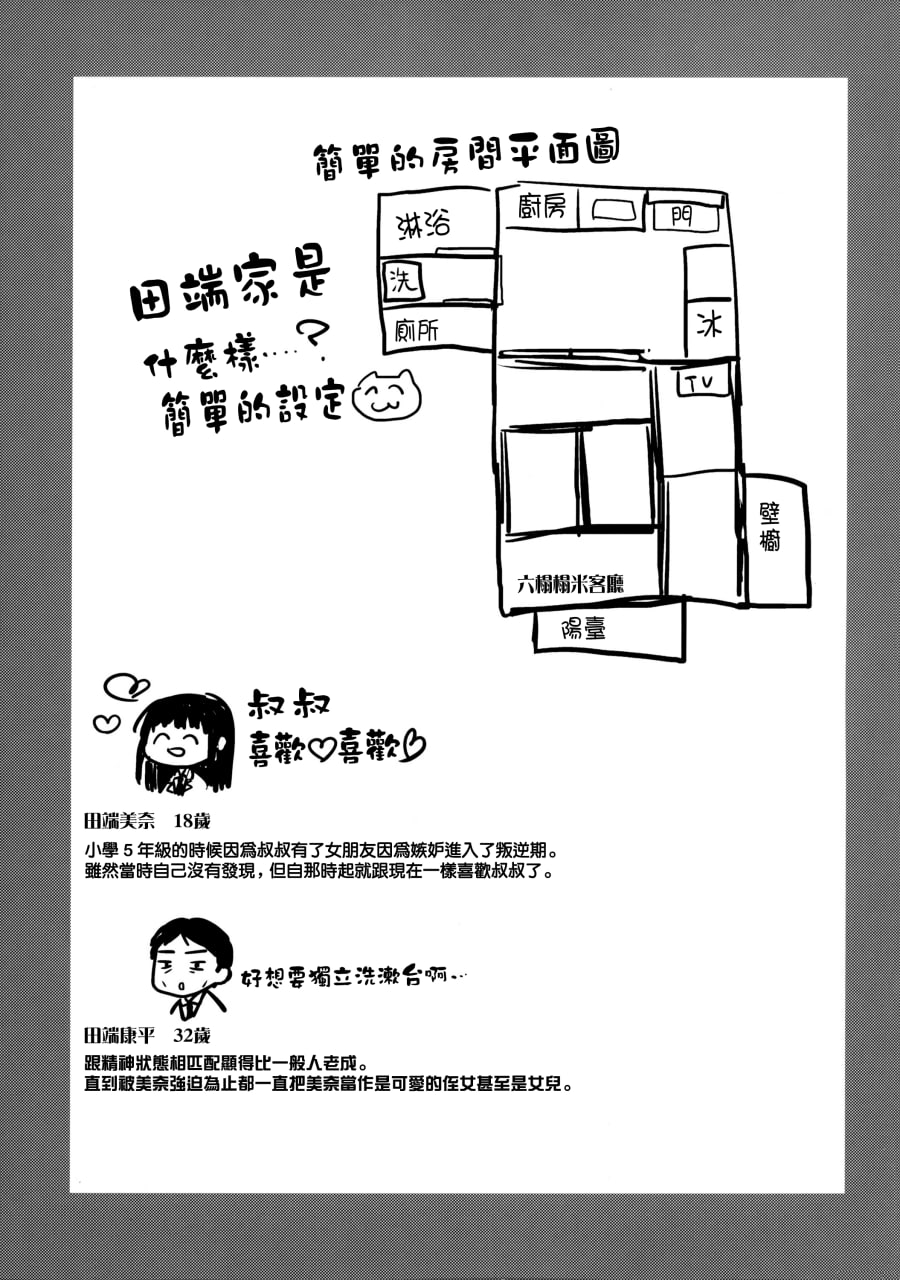 簡單的房間平面圖
田端家是
什麼樣‥‥?
簡單的設定
淋浴
廚房
門
洗
廁所
冰
TV
壁櫥
六榻榻米客廳
陽臺
叔叔
喜歡♡喜歡♡
田端美奈 18歲
小學5年級的時候因為叔叔有了女朋友因為嫉妒進入了叛逆期。
雖然當時自己沒有發現,但自那時起就跟現在一樣喜歡叔叔了。
好想要獨立洗漱台啊…
田端康平 32歲
跟精神狀態相匹配顯得比一般人老成。
直到被美奈強迫為止都一直把美奈當作是可愛的侄女甚至是女兒。